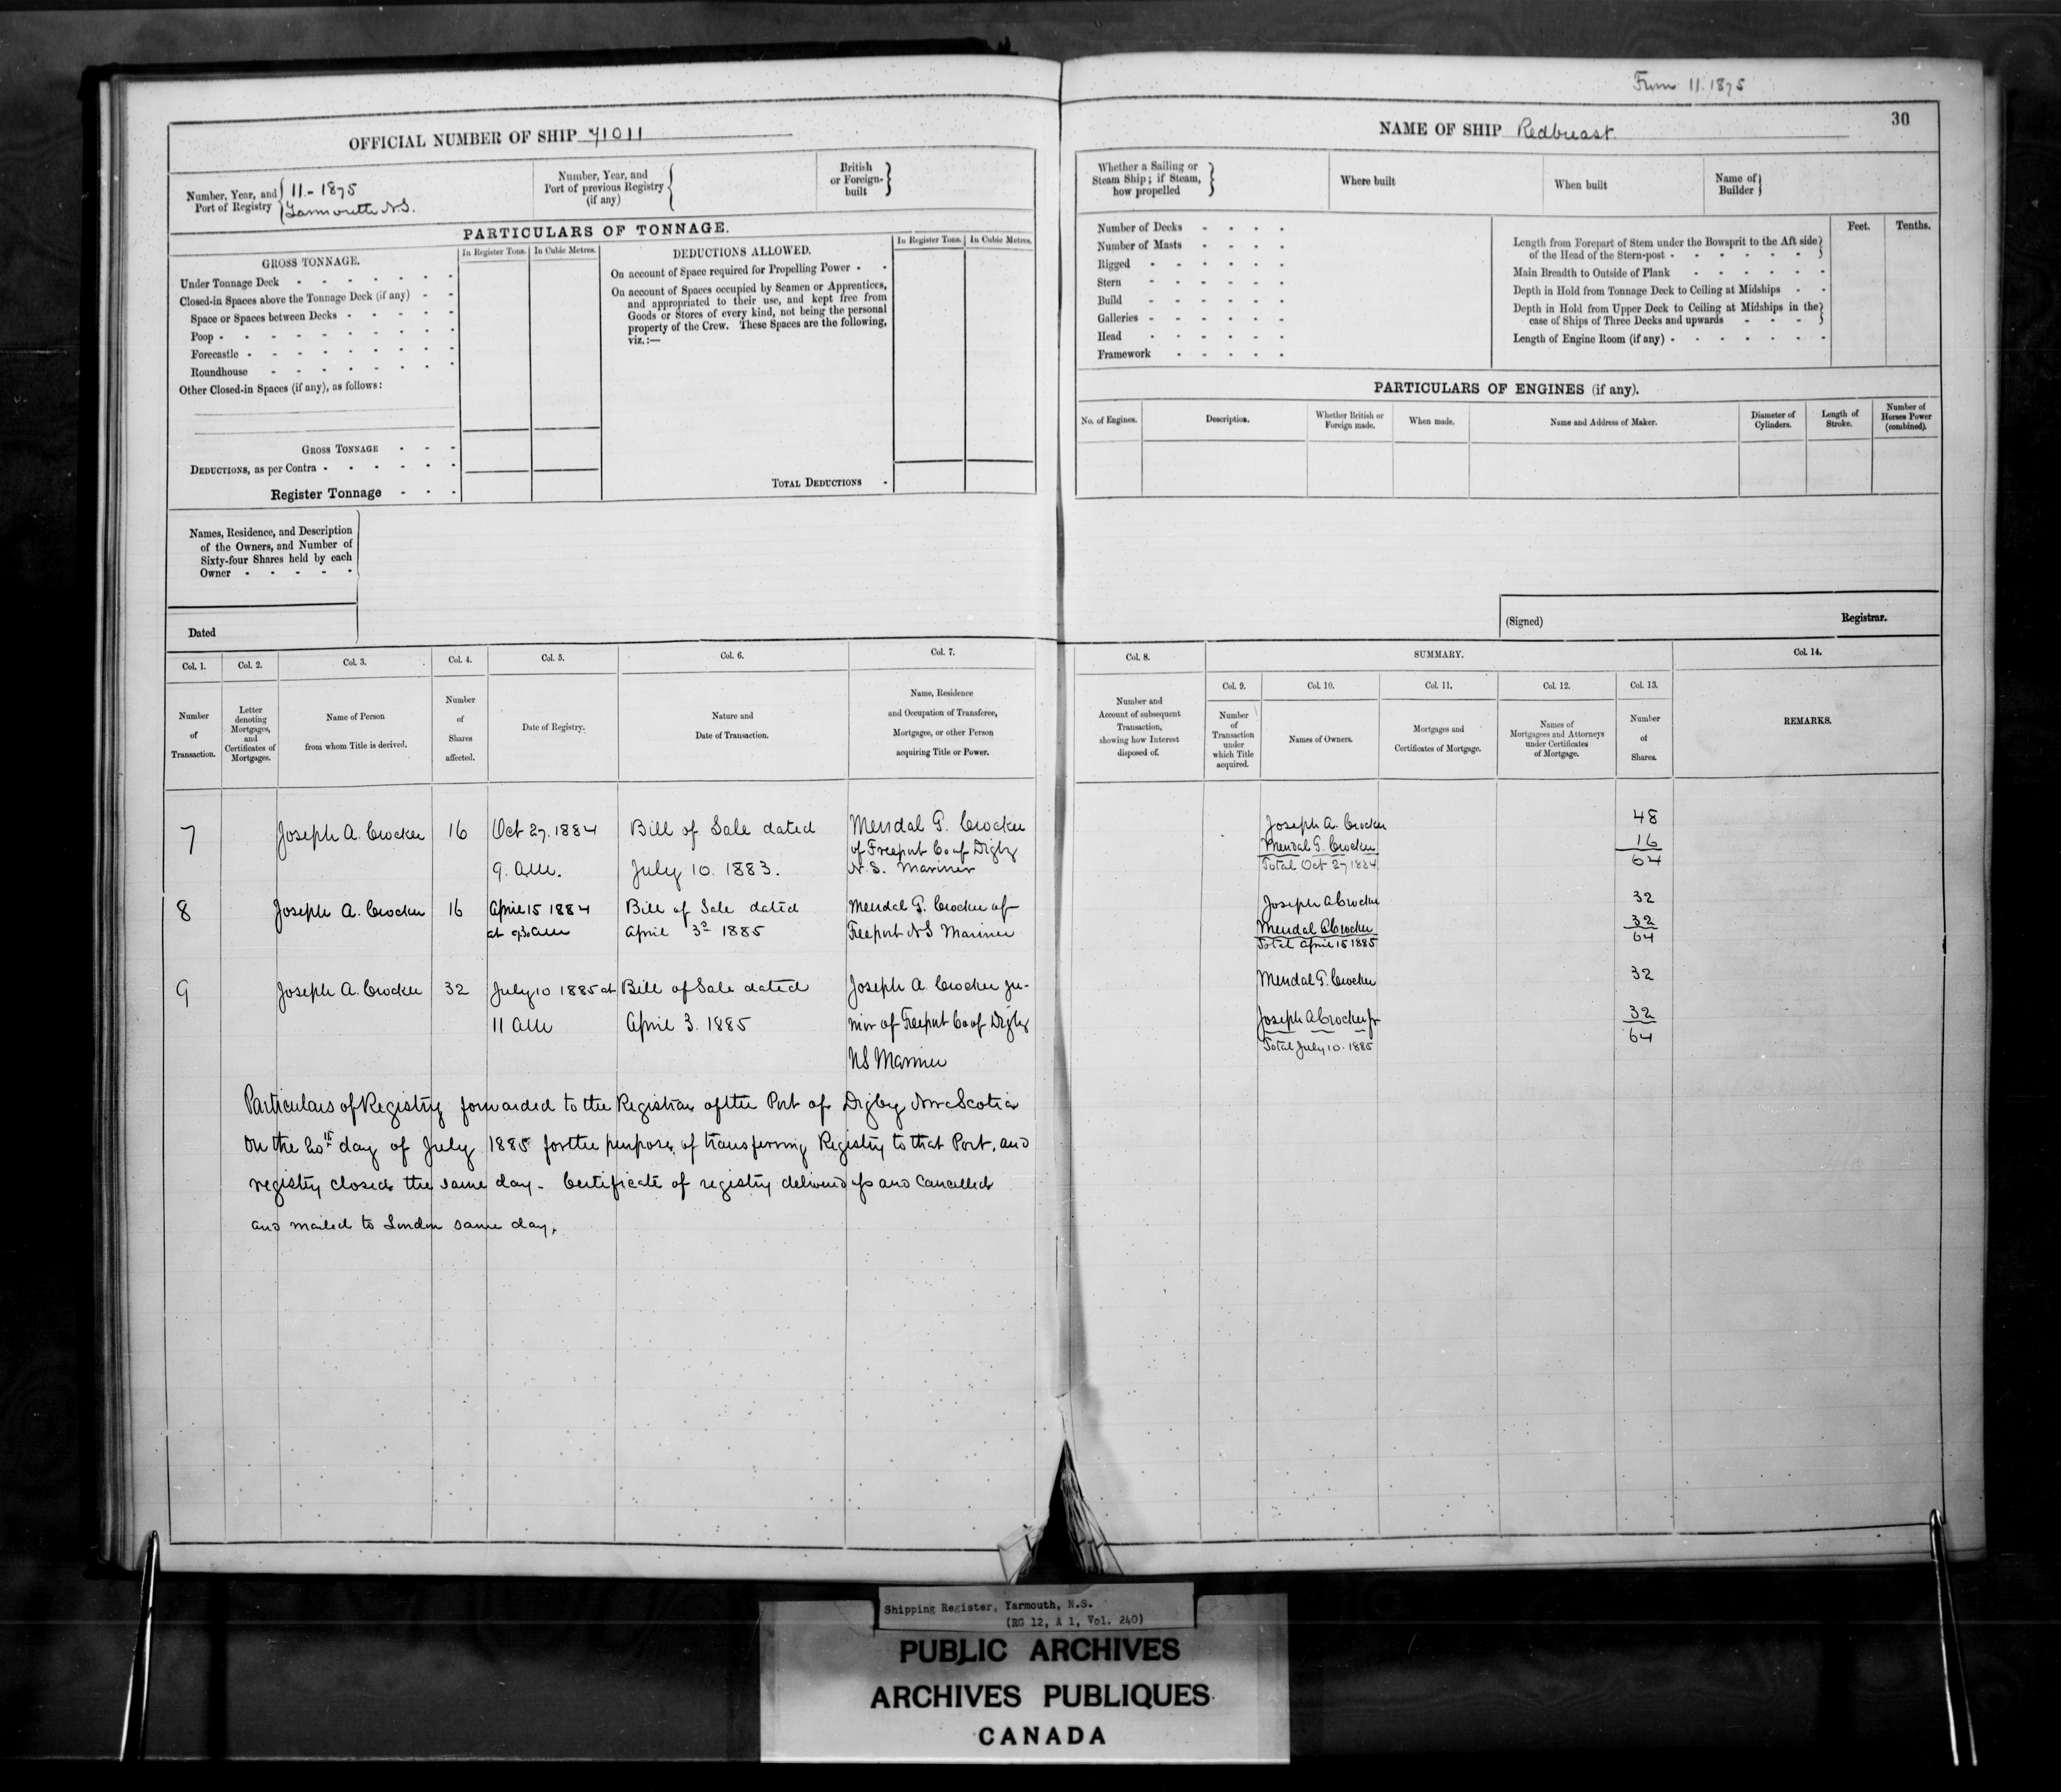 From 11. 1875
30
OFFICIAL NUMBER OF SHIP 71011
Number, Year, and Port of Registry { 11 - 1875
Yarmouth N.S.
Number, Year, and
Port of previous Registry
(if any)
British
or Foreign-
built
PARTICULARS OF TONNAGE.
GROSS TONNAGE.
In Register Tons. In Cubic Metres.
Under Tonnage Deck
Closed-in Spaces above the Tonnage Deck (if any)
Space or Spaces between Decks
Poop
Forecastle
Roundhouse
Other Closed-in Spaces (if any), as follows:
GROSS TONNAGE
DEDUCTIONS, as per Contra
Register Tonnage
DEDUCTIONS ALLOWED.
In Register Tons. In Cubic Metres.
On account of Space required for Propelling Power
On account of Spaces occupied by Seamen or Apprentices,
and appropriated to their use, and kept free from
Goods or Stores of every kind, not being the personal
property of the Crew. These Spaces are the following,
viz.:—
TOTAL DEDUCTIONS
Names, Residence, and Description
of the Owners, and Number of
Sixty-four Shares held by each
Owner
Dated
NAME OF SHIP Redbreast
Whether a Sailing or
Steam Ship; if Steam,
how propelled
Where built
When built
Name of
Builder
Number of Decks
Number of Masts
Rigged
Stern
Build
Galleries
Head
Framework
Feet. Tenths.
Length from Forepart of Stem under the Bowsprit to the Aft side
of the Head of the Stern-post
Main Breadth to Outside of Plank
Depth in Hold from Tonnage Deck to Ceiling at Midships
Depth in Hold from Upper Deck to Ceiling at Midships in the
case of Ships of Three Decks and upwards
Length of Engine Room (if any)
PARTICULARS OF ENGINES (if any).
No. of Engines.
Description.
Whether British or
Foreign made.
When made.
Name and Address of Maker.
Diameter of
Cylinders.
Length of
Stroke.
Number of
Horses Power
(combined).
(Signed) Registrar.
Col. 1. Col. 2. Col. 3. Col. 4. Col. 5. Col. 6. Col. 7.
Number
of
Transaction.
Letter
denoting
Mortgages,
and
Certificates of
Mortgages.
Name of Person
from whom Title is derived.
Number
of
Shares
affected.
Date of Registry.
Nature and
Date of Transaction.
Name, Residence
and Occupation of Transferee,
Mortgagee, or other Person
acquiring Title or Power.
Col. 8. SUMMARY. Col. 14.
Col. 9. Col. 10. Col. 11. Col. 12. Col. 13.
Number and
Account of subsequent
Transaction,
showing how Interest
disposed of.
Number
of
Transaction
under
which Title
acquired.
Names of Owners.
Mortgages and
Certificates of Mortgage.
Names of
Mortgagees and Attorneys
under Certificates
of Mortgage.
Number
of
Shares.
REMARKS.
7 Joseph A. Crocker 16 Oct 27. 1884 Bill of Sale dated Mendal G. Crocker
of Freeport Co of Digby
9. am. July 10. 1883. N.S. Mariner
8 Joseph A. Crocker 16 April 15 1884 Bill of Sale dated Mendal G. Crocker of
at 9.30 am April 3d 1885 Freeport NS Mariner
9 Joseph A. Crocker 32 July 10 1885 at Bill of Sale dated Joseph A. Crocker ju-
11 am April 3. 1885 nior of Freeport Co of Digby
NS Mariner
Particulars of Registry forwarded to the Registrar of the Port of Digby Nova Scotia
on the 20th day of July 1885 for the purpose of transferring Registry to that Port, and
registry closed the same day. Certificate of registry delivered up and cancelled
and mailed to London same day.
Joseph A. Crocker 48
Mendal G. Crocker 16
Total Oct 27 1884 64
Joseph A Crocker 32
Mendal A Crocker 32
Total April 15 1885 64
Mendal G. Crocker 32
Joseph A Crocker jr 32
Total July 10. 1885 64
Shipping Register, Yarmouth, N.S.
(RG 12, A 1, Vol. 240)
PUBLIC ARCHIVES
ARCHIVES PUBLIQUES
CANADA